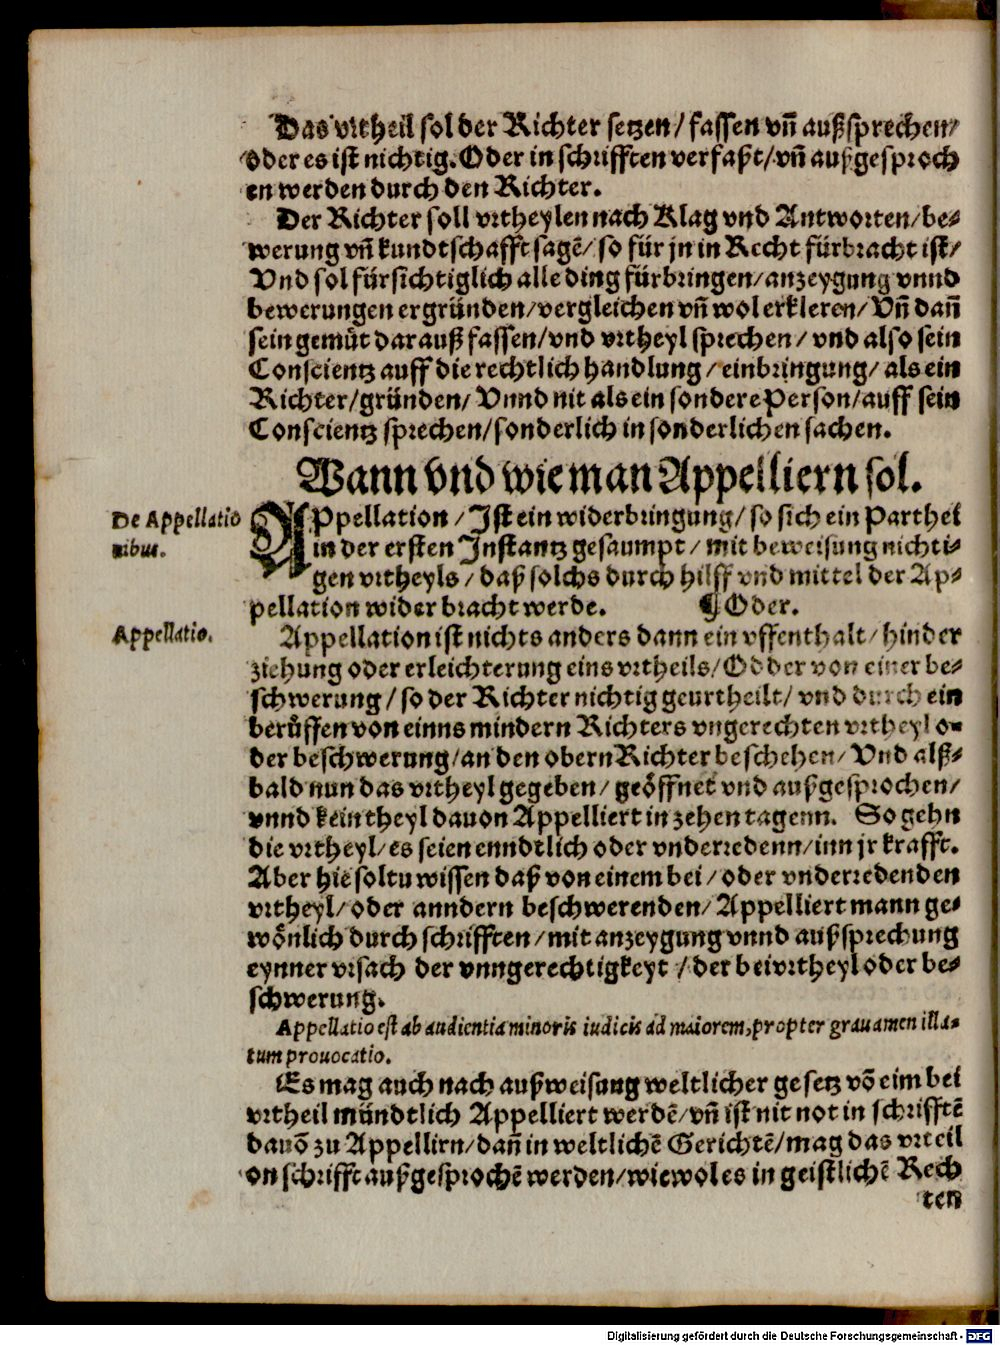 Das vrtheil sol der Richter setzen/ fassen vñ außsprechen/
oder es ist nichtig. Oder in schrifften verfaßt/ vñ außgesproch
en werden durch den Richter.
Der Richter soll vrtheylen nach Klag vnd Antworten/ be-
werung vñ kundtschafft sagẽ/ so für jn in Recht fürbracht ist/
Vnd sol fürsichtiglich alle ding fürbringen/ anzeygung vnnd
bewerungen ergründen/ vergleichen vñ wol erkleren/ Vñ dañ
sein gemüt darauß fassen/ vnd vrtheyl sprechen/ vnd also sein
Conscientz auff die rechtlich handlung/ einbringung/ als ein
Richter/ gründen/ Vnnd nit als ein sondere Person/ auff sein
Conscientz sprechen/ sonderlich in sonderlichen sachen.
Wann vnd wie man Appelliern sol.
De Appellatio
nibus.
APpellation/ Ist ein widerbringung/ so sich ein Parthei
in der ersten Instantz gesaumpt/ mit beweisung nichti-
gen vrtheyls/ daß solchs durch hilff vnd mittel der Ap-
pellation widerbracht werde. ¶ Oder.
Appellatio.
Appellation ist nichts anders dann ein vffenthalt/ hinder
ziehung oder erleichterung eins vrtheils/ Odder von einer be-
schwerung/ so der Richter nichtig geurtheilt/ vnd durch ein
berůffen von einns mindern Richters vngerechten vrtheyl o-
der beschwerung/ an den obern Richter beschehen/ Vnd alß-
bald nun das vrtheyl gegeben/ geöffnet vnd außgesprochen/
vnnd kein theyl dauon Appelliert in zehen tagenn. So gehn
die vrtheyl/ es seien enndtlich oder vnderredenn/ inn jr krafft.
Aber hie soltu wissen daß von einem bei/ oder vnderredenden
vrtheyl/ oder anndern beschwerenden/ Appelliert mann ge-
wönlich durch schrifften/ mit anzeygung vnnd außsprechung
eynner vrsach der vnngerechtigkeyt/ der beivrtheyl oder be-
schwerung.
Appellatio est ab audientia minoris iudicis ad maiorem, propter grauamen illa-
tum prouocatio.
Es mag auch nach außweisung weltlicher gesetz võ eim bei
vrtheil mündtlich Appelliert werdẽ/ vñ ist nit not in schrifftẽ
dauõ zu Appellirn/ dañ in weltlichẽ Gerichtẽ/ mag das vrteil
on schrifft außgesprochẽ werden/ wiewol es in geistlichẽ Rech
ten
Digitalisierung gefördert durch die Deutsche Forschungsgemeinschaft - DFG